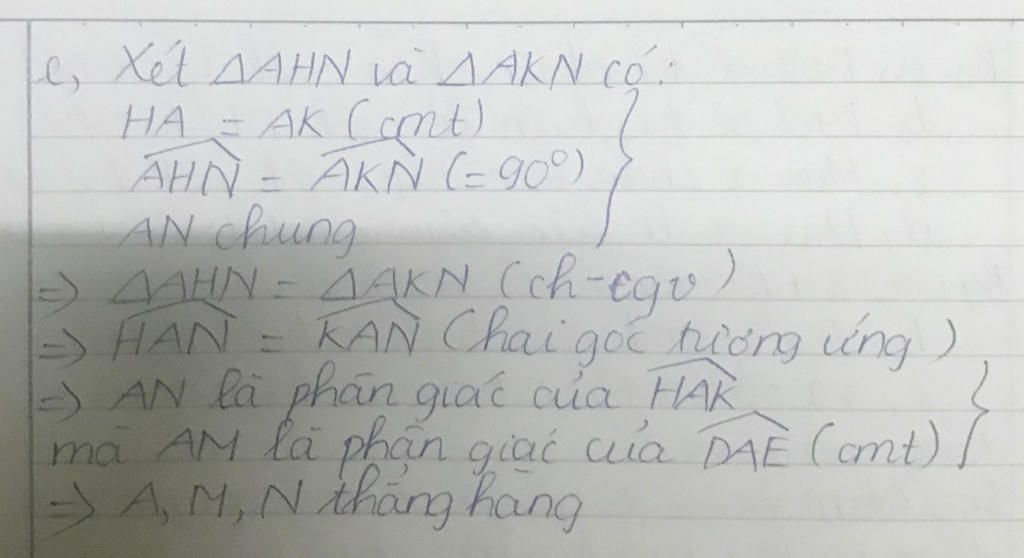 c, Xét ΔAHN và ΔAKN có:
HA = AK (cmt)
AHN = AKN (= 90°)
AN chung
=> ΔAHN = ΔAKN (ch-cgv)
=> HAN = KAN (hai góc tương ứng)
=> AN là phân giác của HAK
mà AM là phân giác của DAE (cmt)
=> A, M, N thẳng hàng